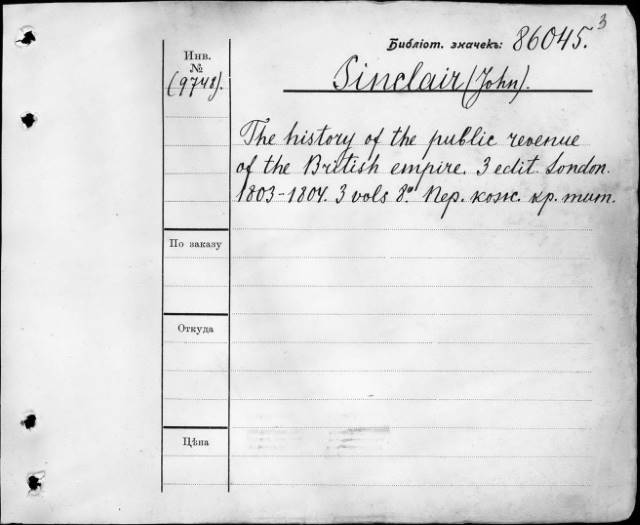 3
Библіот. значекъ: 86045.
Инв.
№
(9748).
Sinclair (John).
The history of the public revenue
of the British empire. 3 edit. London.
1803-1804. 3 vols 8º. Пер. кож. кр. тит.
По заказу
Откуда
Цѣна